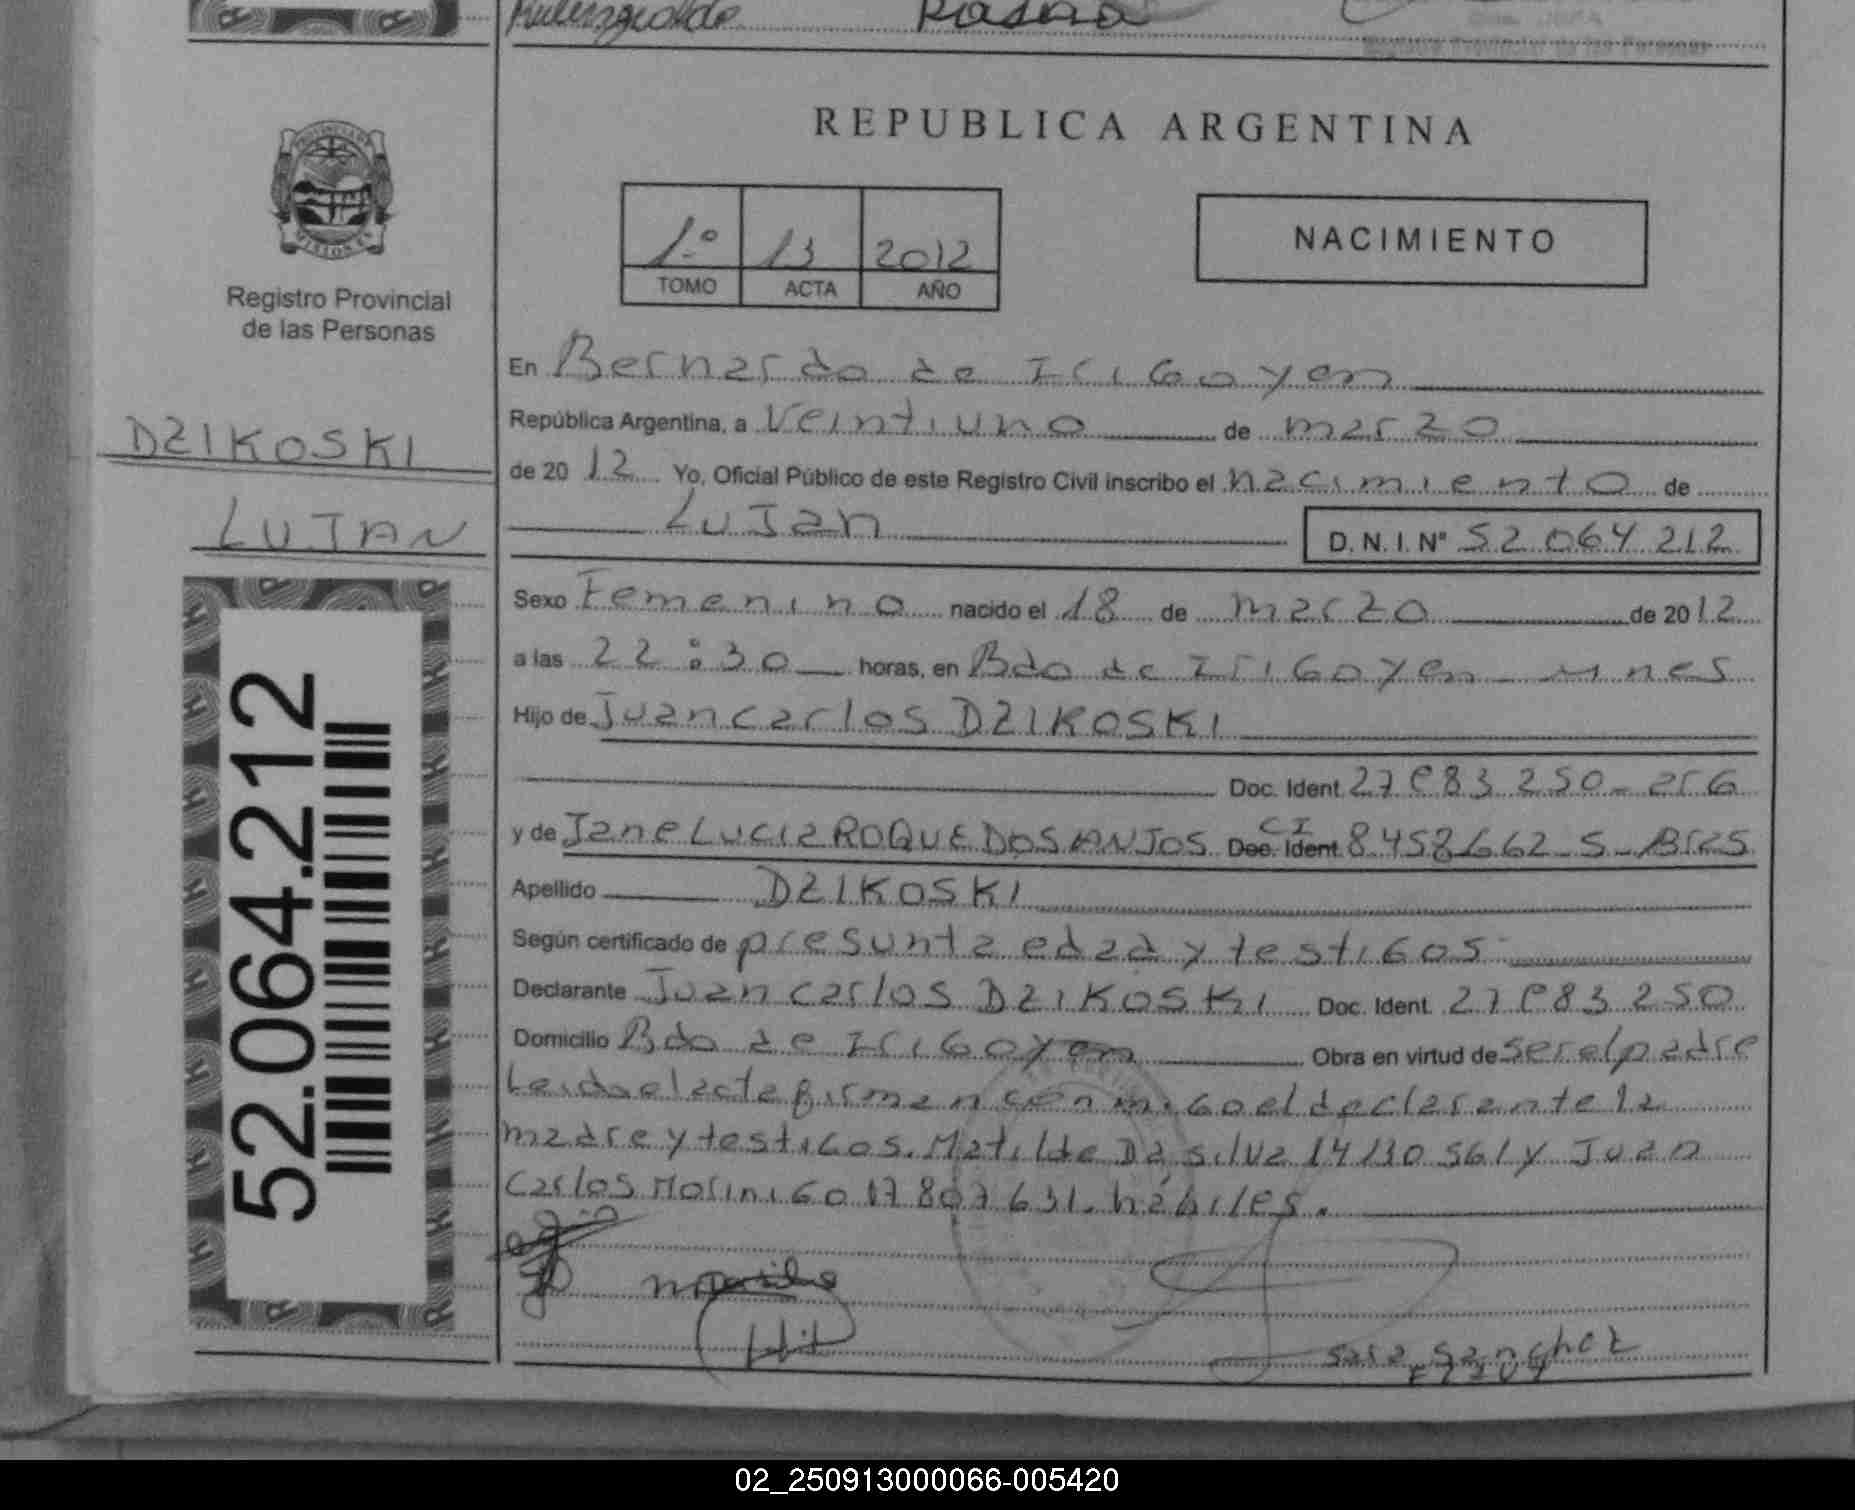 REPUBLICA ARGENTINA
PROVINCIA DE
MISIONES
Registro Provincial
de las Personas
1º 13 2012
TOMO ACTA AÑO
NACIMIENTO
DZIKOSKI
LUJAN
52.064.212
En Bernardo de Irigoyen
República Argentina, a Veintiuno de marzo
de 2012 Yo, Oficial Público de este Registro Civil inscribo el nacimiento de
Lujan D.N.I. Nº 52 064 212
Sexo Femenino nacido el 18 de marzo de 2012
a las 22:30 horas, en Bdo de Irigoyen - Mnes
Hijo de Juan Carlos DZIKOSKI
Doc. Ident. 27 083 250 - arg
y de Jane Lucia ROQUE DOS ANJOS Doc. Ident. CI 8458662-5-Bras
Apellido DZIKOSKI
Según certificado de presunta edad y testigos
Declarante Juan Carlos DZIKOSKI Doc. Ident. 27 083 250
Domicilio Bdo de Irigoyen Obra en virtud de ser el padre
Leida el acta firman conmigo el declarante la
madre y testigos. Matilde Da silva 14 130 561 y Juan
Carlos Morinigo 17 807 631. hábiles.
Sara Sanchez
02_250913000066-005420